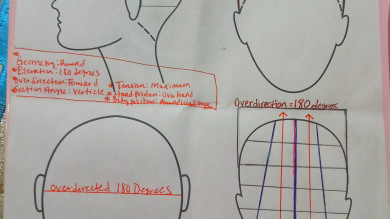 Geometry: Round
Elevation: 180 degrees
overdirection: Forward
Section Angle: verticle
Tension: maximum
Hand Position: Over hand
Body position:
Overdirection = 180 degrees
overdirected 180 Degrees